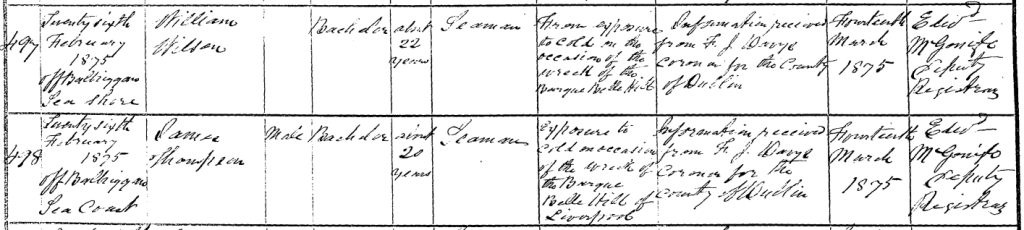 497
Twenty sixth
February
1875
off Balbriggan
Sea Shore
William
Wilson
Bachelor
about
22
years
Seaman
From exposure
to cold on the
occasion of the
wreck of the
Barque Belle Hill
Information received
from F. J. Davys
Coroner for the County
of Dublin
Fourteenth
March
1875
Edwd
Deputy
Registrar
498
Twenty sixth
February
1875
off Balbriggan
Sea Coast
James
Thompson
Male
Bachelor
about
20
years
Seaman
Exposure to
cold on occasion
of the wreck of
the Barque
Belle Hill of
Liverpool
Information received
from F. J. Davys
Coroner for the
County of Dublin
Fourteenth
March
1875
Edwd
Deputy
Registrar